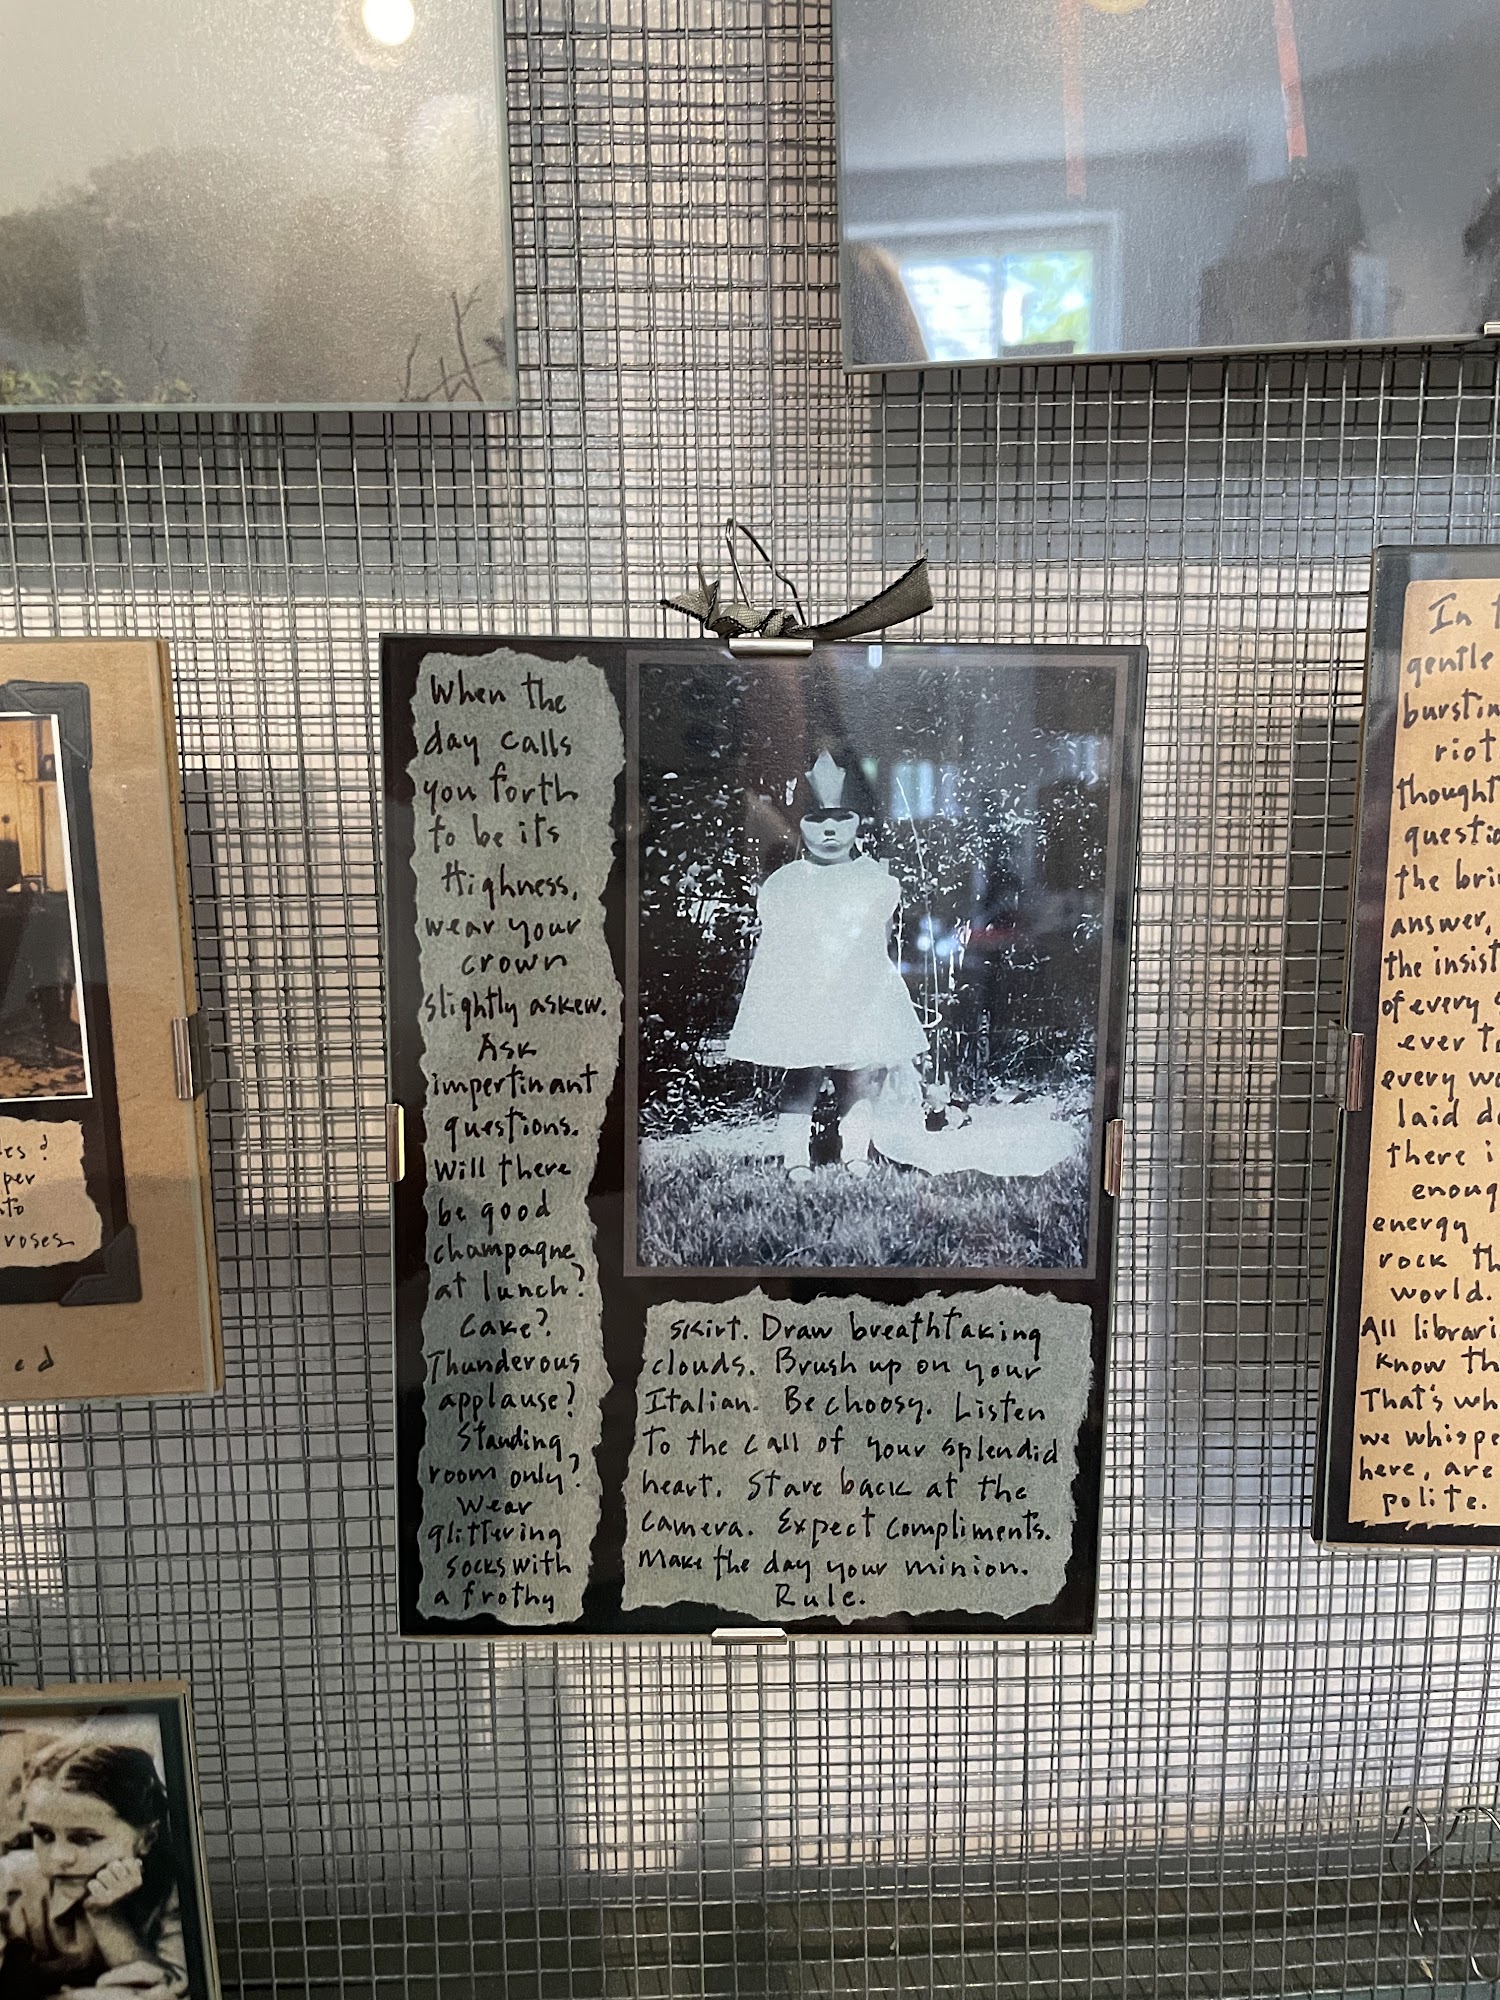 When the
day calls
you forth
to be its
Highness,
wear your
crown
slightly askew.
Ask
impertinant
questions.
Will there
be good
champagne
at lunch?
Cake?
Thunderous
applause?
Standing
room only?
Wear
glittering
socks with
a frothy
skirt. Draw breathtaking
clouds. Brush up on your
Italian. Be choosy. Listen
to the call of your splendid
heart. Stare back at the
camera. Expect compliments.
Make the day your minion.
Rule.
per
roses
In
gentle
riot
answer,
of every
ever
every
laid
there
energy
rock
world.
All
know
That's
we
here, are
polite.